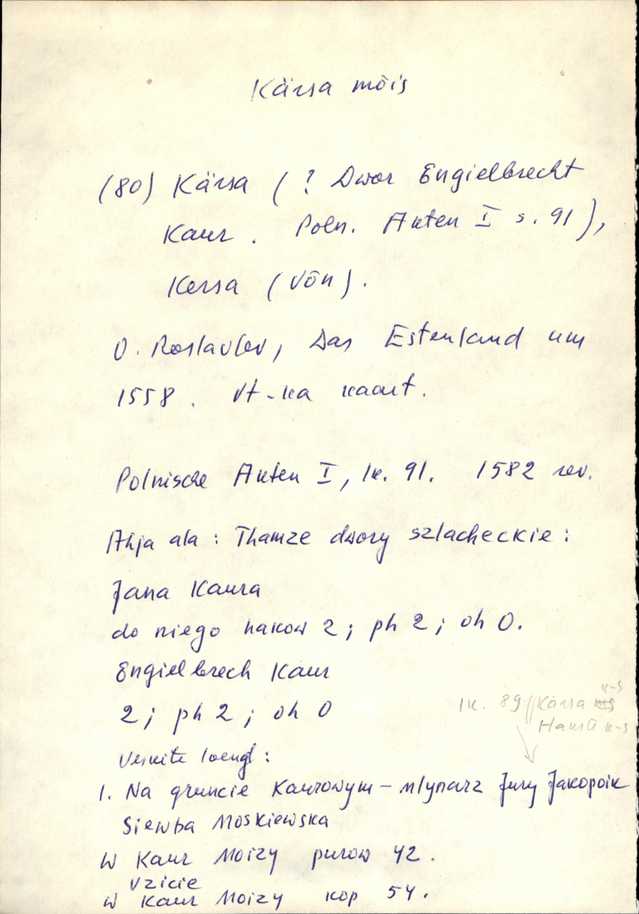 Kärsa mõis
(80) Kärsa (? Dwor Engielbrecht
Kaur. Poln. Akten I s. 91),
Kersa (Võn).
O. Roslavlev, Das Estenland um
1558. Vt-ka kaart.
Polnische Akten I, lk. 91. 1582 rev.
Ahja ala: Thamze dwory szlacheckie:
Jana Kaura
do niego hakow 2; ph 2; oh 0.
Engielbrech Kaur
2; ph 2; oh 0
lk. 89 // Kärsa k-s
Veskite loengl:
1. Na gruncie Kaurowym – mlynarz Jury Jakopoik
Siewba Moskiewska
W Kaur Moizy purow 42.
Vzicie
W Kaur Moizy kop 54.